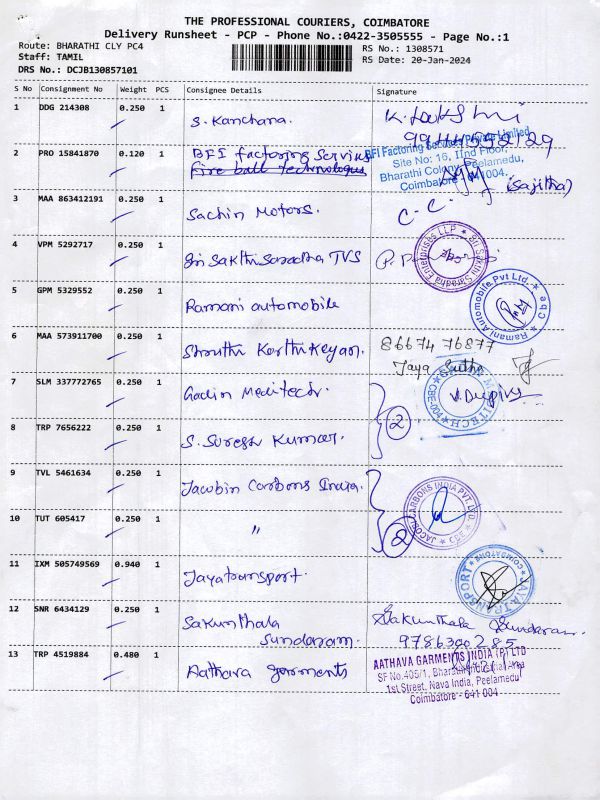 THE PROFESSIONAL COURIERS, COIMBATORE
Delivery Runsheet - PCP - Phone No.:0422-3505555 - Page No.:1
Route: BHARATHI CLY PC4
RS No.: 1308571
Staff: TAMIL
RS Date: 20-Jan-2024
DRS No.: DCJB130857101
S No Consignment No Weight PCS Consignee Details Signature
1 DDG 214308 0.250 1 S. Kanchana.
2 PRO 15841870 0.120 1 BFI factoring Services
Fire ball technologies
BFI Factoring Services Private Limited
Site No: 16, IInd Floor,
Bharathi Colony, Peelamedu,
Coimbatore - 641004.
(Sajitha)
3 MAA 863412191 0.250 1 Sachin Motors. C. C.
4 VPM 5292717 0.250 1 Sri Sakthi Saradha TVS
Sri Sakthi Saradha Enterprises LLP
5 GPM 5329552 0.250 1 Ramani automobile
Ramani Automobile Pvt Ltd.
6 MAA 573911700 0.250 1 Shruthi Karthikeyan. 86674 76877
Jaya Sutha
7 SLM 337772765 0.250 1 Godin Meditech.
8 TRP 7656222 0.250 1 S. Suresh Kumar. 2
9 TVL 5461634 0.250 1 Jacobin Carbons India.
JACOBI CARBONS INDIA PVT. LTD.
10 TUT 605417 0.250 1 " 2
11 IXM 505749569 0.940 1 Jayatransport.
JAYA TRANSPORT COIMBATORE
12 SNR 6434129 0.250 1 Sakunthala
Sundaram.
Sakunthala Sundaram
9786300285
13 TRP 4519884 0.480 1 Aathava garments
AATHAVA GARMENTS INDIA (P) LTD
SF No.405/1, Bharathi Industrial Area
1st Street, Nava India, Peelamedu
Coimbatore - 641 004